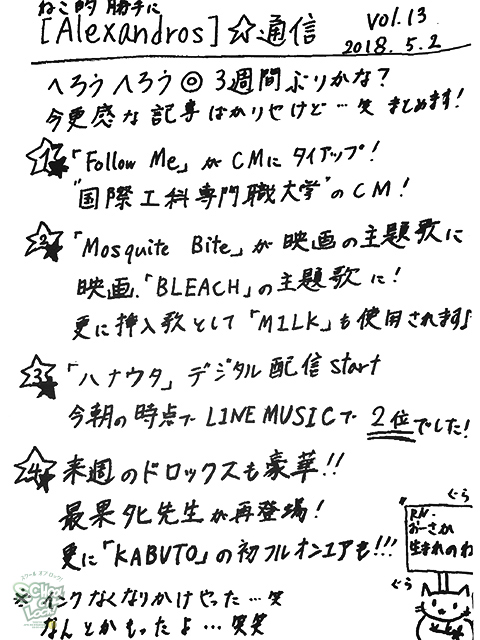 ねこ的 勝手に
[Alexandros]☆通信
vol.13
2018.5.2
へろうへろう◎3週間ぶりかな?
今更感な記事ばかりやけど…笑 まとめます!
1 「Follow Me」がCMにタイアップ!
"国際工科専門職大学"のCM!
2 「Mosquite Bite」が映画の主題歌に
映画、「BLEACH」の主題歌に!
更に挿入歌として「MILK」も使用されます♪
3 「ハナウタ」デジタル配信start
今朝の時点でLINE MUSICで 2位でした!
4 来週のドロックスも豪華!!
最果タヒ先生が再登場!
更に「KABUTO」の初フルオンエアも!!!
※インクなくなりかけやった…笑
なんとかもったよ…笑笑
ぐら
RN.
おーさか
生まれのわ
ぐら
スクールオブロック!
SCHOOL OF LOCK!